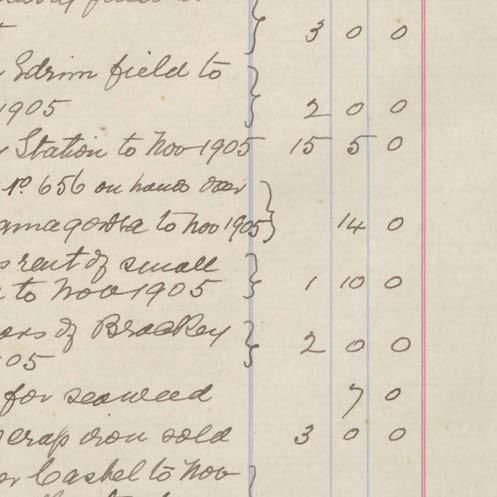 3 0 0
Edrim field to
1905 2 0 0
Station to Nov 1905 15 5 0
No. 656 on hands over
to Nov 1905 14 0
rent of small
to Nov 1905 1 10 0
of Brackey
05 2 0 0
for seaweed 7 0
scrap iron sold 3 0 0
Cashel to Nov